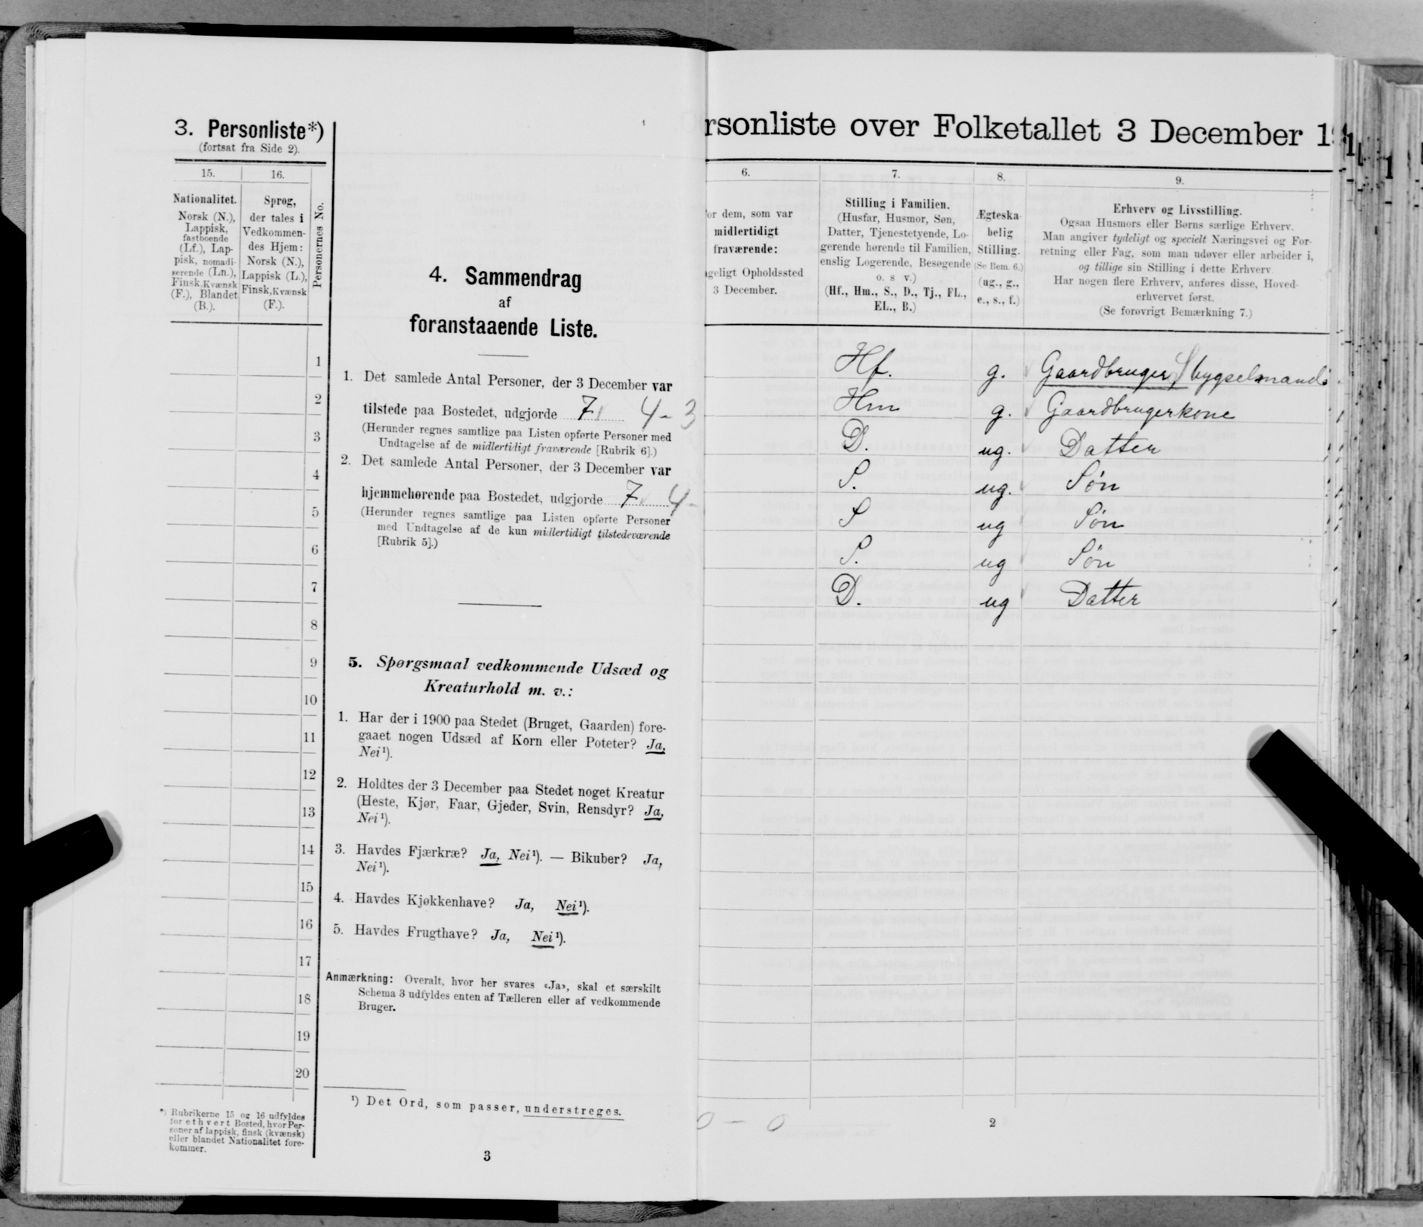 3. Personliste*)
(fortsat fra Side 2).
15.
Nationalitet.
Norsk (N.),
Lappisk,
fastboende
(Lf.), Lap-
pisk, nomadi-
serende (Ln.),
Finsk, Kvænsk
(F.), Blandet
(B.).
16.
Sprog,
der tales i
Vedkommen-
des Hjem:
Norsk (N.),
Lappisk (L.),
Finsk, Kvænsk
(F.).
Personernes No.
1
2
3
4
5
6
7
8
9
10
11
12
13
14
15
16
17
18
19
20
*) Rubrikerne 15 og 16 udfyldes
for ethvert Bosted, hvor Per-
soner af lappisk, finsk (kvænsk)
eller blandet Nationalitet fore-
kommer.
4. Sammendrag
af
foranstaaende Liste.
1. Det samlede Antal Personer, der 3 December var
tilstede paa Bostedet, udgjorde 7 4-3
(Herunder regnes samtlige paa Listen opførte Personer med
Undtagelse af de midlertidigt fraværende [Rubrik 6].)
2. Det samlede Antal Personer, der 3 December var
hjemmehørende paa Bostedet, udgjorde 7 4-
(Herunder regnes samtlige paa Listen opførte Personer
med Undtagelse af de kun midlertidigt tilstedeværende
[Rubrik 5].)
5. Spørgsmaal vedkommende Udsæd og
Kreaturhold m. v.:
1. Har der i 1900 paa Stedet (Bruget, Gaarden) fore-
gaaet nogen Udsæd af Korn eller Poteter? Ja,
Nei¹).
2. Holdtes der 3 December paa Stedet noget Kreatur
(Heste, Kjør, Faar, Gjeder, Svin, Rensdyr? Ja,
Nei¹).
3. Havdes Fjærkræ? Ja, Nei¹). — Bikuber? Ja,
Nei¹).
4. Havdes Kjøkkenhave? Ja, Nei¹).
5. Havdes Frugthave? Ja, Nei¹).
Anmærkning: Overalt, hvor her svares «Ja», skal et særskilt
Schema 3 udfyldes enten af Tælleren eller af vedkommende
Bruger.
¹) Det Ord, som passer, understreges.
3
rsonliste over Folketallet 3 December 1
6.
or dem, som var
midlertidigt
fraværende:
geligt Opholdssted
3 December.
7.
Stilling i Familien.
(Husfar, Husmor, Søn,
Datter, Tjenestetyende, Lo-
gerende hørende til Familien,
enslig Logerende, Besøgende
o. s v.)
(Hf., Hm., S., D., Tj., FL.,
EL., B.)
8.
Ægteska-
belig
Stilling.
(Se Bem. 6.)
(ug., g.,
e., s., f.)
9.
Erhverv og Livsstilling.
Ogsaa Husmors eller Børns særlige Erhverv.
Man angiver tydeligt og specielt Næringsvei og For-
retning eller Fag, som man udøver eller arbeider i,
og tillige sin Stilling i dette Erhverv
Har nogen flere Erhverv, anføres disse, Hoved-
erhvervet først.
(Se forøvrigt Bemærkning 7.)
Hf. g. Gaardbruger, bygselmand
Hm g. Gaardbrugerkone
D. ug. Datter
S. ug. Søn
S ug Søn
S. ug Søn
D. ug Datter
0 - 0
2